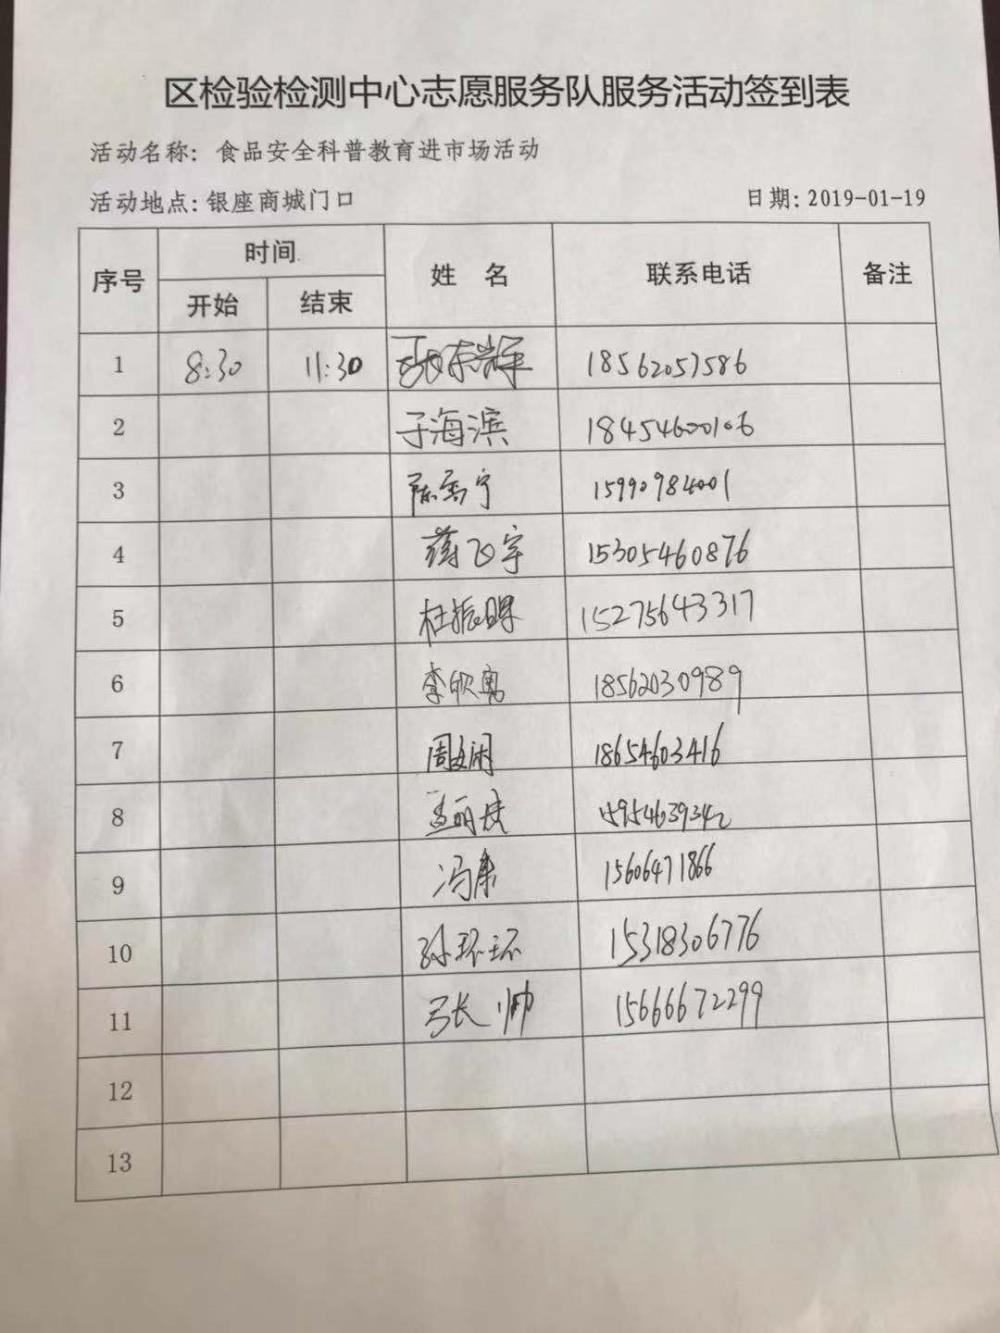 区检验检测中心志愿服务队服务活动签到表
活动名称: 食品安全科普教育进市场活动
活动地点: 银座商城门口 日期: 2019-01-19
序号 时间 姓 名 联系电话 备注
开始 结束
1 8:30 11:30 18562057586
2 于海滨 18454600106
3 15990984001
4 蒋飞宇 15305460876
5 杜振明 15275643317
6 李欣 18562030989
7 周文娟 18654603416
8 孟丽 15954639342
9 冯康 15606471866
10 孙环环 15318306776
11 张帅 15666672299
12
13